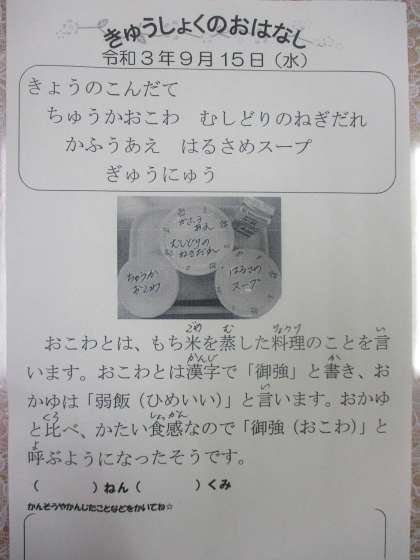 きゅうしょくのおはなし
令和３年９月１５日（水）
きょうのこんだて
ちゅうかおこわ　むしどりのねぎだれ
かふうあえ　はるさめスープ
ぎゅうにゅう
かふう
あえ
むしどりの
ねぎだれ
ちゅうか
おこわ
はるさめ
スープ
こめ　む　りょうり　い
おこわとは、もち米を蒸した料理のことを言
かんじ　か
います。おこわとは漢字で「御強」と書き、お
い
かゆは「弱飯（ひめいい）」と言います。おかゆ
くら　しょっかん
と比べ、かたい食感なので「御強（おこわ）」と
よ
呼ぶようになったそうです。
（　　　）ねん（　　　）くみ
かんそうやかんじたことなどをかいてね☆